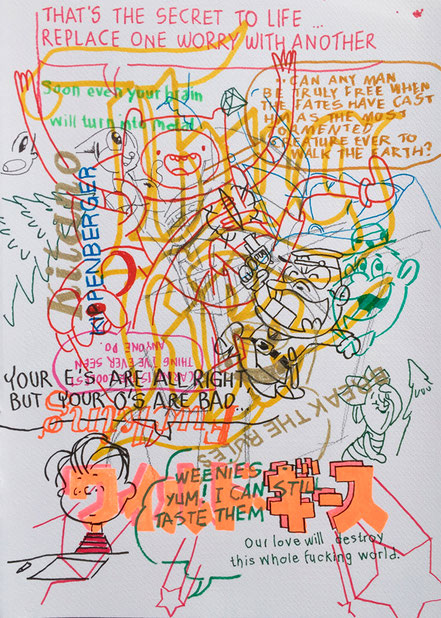 THAT'S THE SECRET TO LIFE...
REPLACE ONE WORRY WITH ANOTHER
Soon even your brain
will turn into metal
CAN ANY MAN
BE TRULY FREE WHEN
THE FATES HAVE CAST
HIM AS THE MOST
TORMENTED
CREATURE EVER TO
WALK THE EARTH?
Kitano
KIPPENBERGER
THING I'VE EVER SEEN
ANYONE DO.
YOUR E'S ARE ALL RIGHT
BUT YOUR O'S ARE BAD...
BREAK THE RULES
WEENIES
YUM! I CAN STILL
TASTE THEM
ギース
Our love will destroy
this whole fucking world.